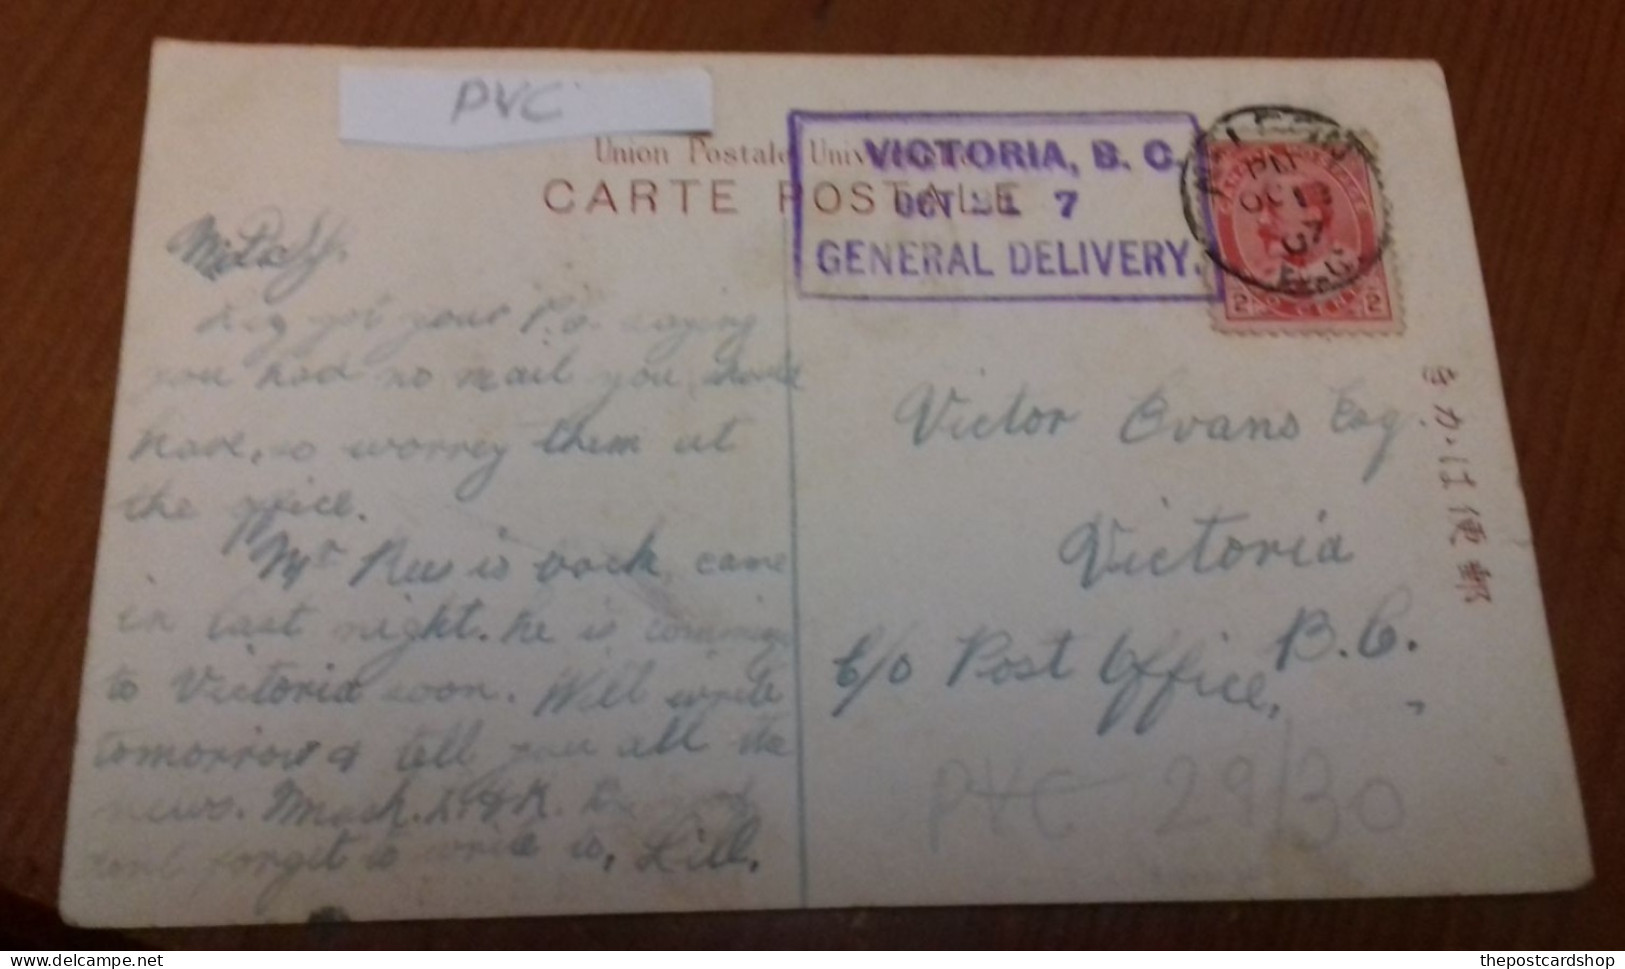 PVC
Union Postale Universelle
CARTE POSTALE
VICTORIA, B. C.
OCT 7
GENERAL DELIVERY.
2 2
got your P.C. saying
you had no mail you should
have, so worrey them at
the office.
Mr Rees is back, came
in last night. he is comming
to Victoria soon. Will write
tomorrow & tell you all the
news. Much. L. & K.
dont forget to write to, Lill.
Victor Evans Esq
Victoria
B.C.
c/o Post Office,
きがは便郵
PVC 29/30
thepostcardshop